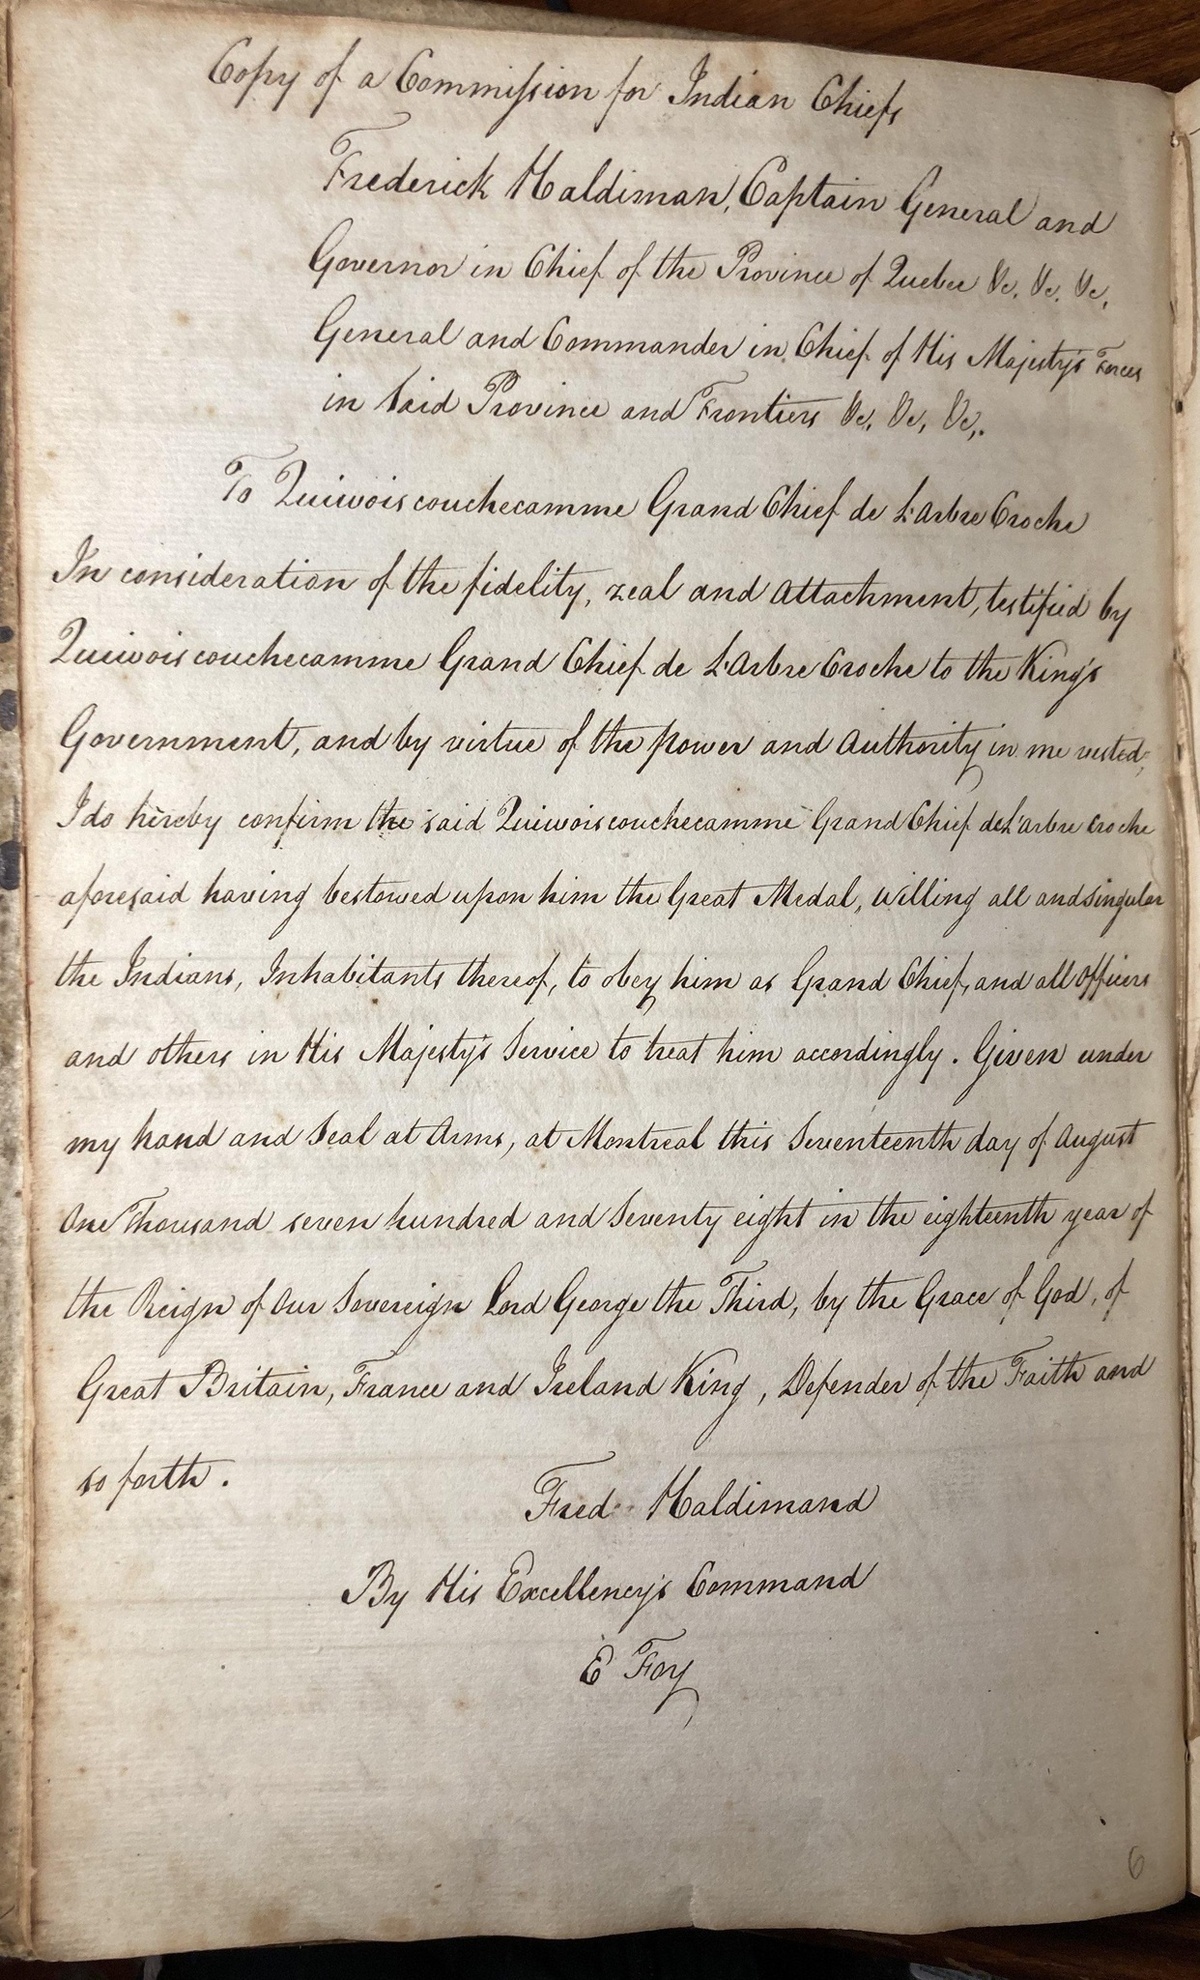 Copy of a Commission for Indian Chiefs
Frederick Haldiman, Captain General and
Governor in Chief of the Province of Quebec &c. &c. &c.
General and Commander in Chief of His Majesty's Forces
in said Province and Frontiers &c. &c, &c,.
To Quiwoiscouchecamme Grand Chief de L'Arbre Croche
In consideration of the fidelity, zeal and Attachment, testified by
Quiwoiscouchecamme Grand Chief de L'Arbre Croche to the King's
Government, and by virtue of the power and Authority in me vested,
I do hereby confirm the said Quiwoiscouchecamme Grand Chief de L'arbre Croche
aforesaid having bestowed upon him the Great Medal, willing all and Singular
the Indians, Inhabitants thereof, to obey him as Grand Chief, and all Officers
and others in His Majesty's Service to treat him accordingly. Given under
my hand and Seal at Arms, at Montreal this Seventeenth day of August
One Thousand seven hundred and Seventy eight in the eighteenth year of
the Reign of Our Sovereign Lord George the Third, by the Grace of God, of
Great Britain, France and Ireland King, Defender of the Faith and
so forth.
Fred Haldimand
By His Excellency's Command
E Foy
6